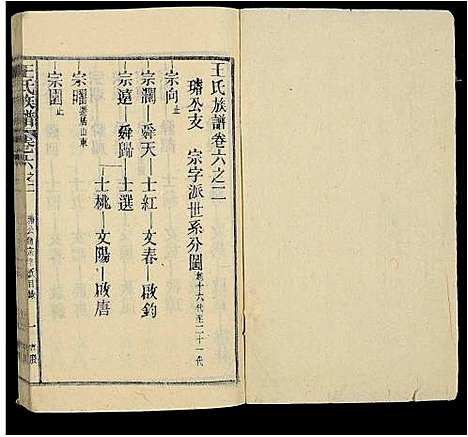 王氏族譜卷六之二
璿公支 宗字派世系分圖 起十六代至二十一代
宗向 止
宗瀾—舜天—士紅—文春—啟鈞
宗遠—舜歸—士選
士桃—文陽—啟唐
宗曜 遷居山東
宗圍 止
王氏族譜 卷六之二